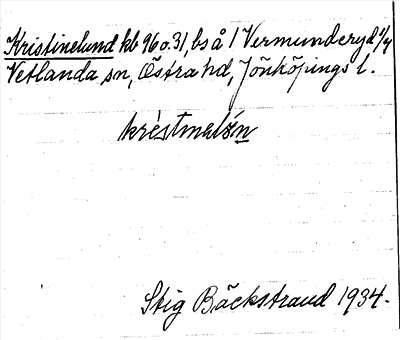 Kristinelund kb 96 o. 31, bs å 1 Vermunderyd 1/4
Vetlanda sn, Östra hd, Jönköpings l.
Stig Bäckstrand 1934.